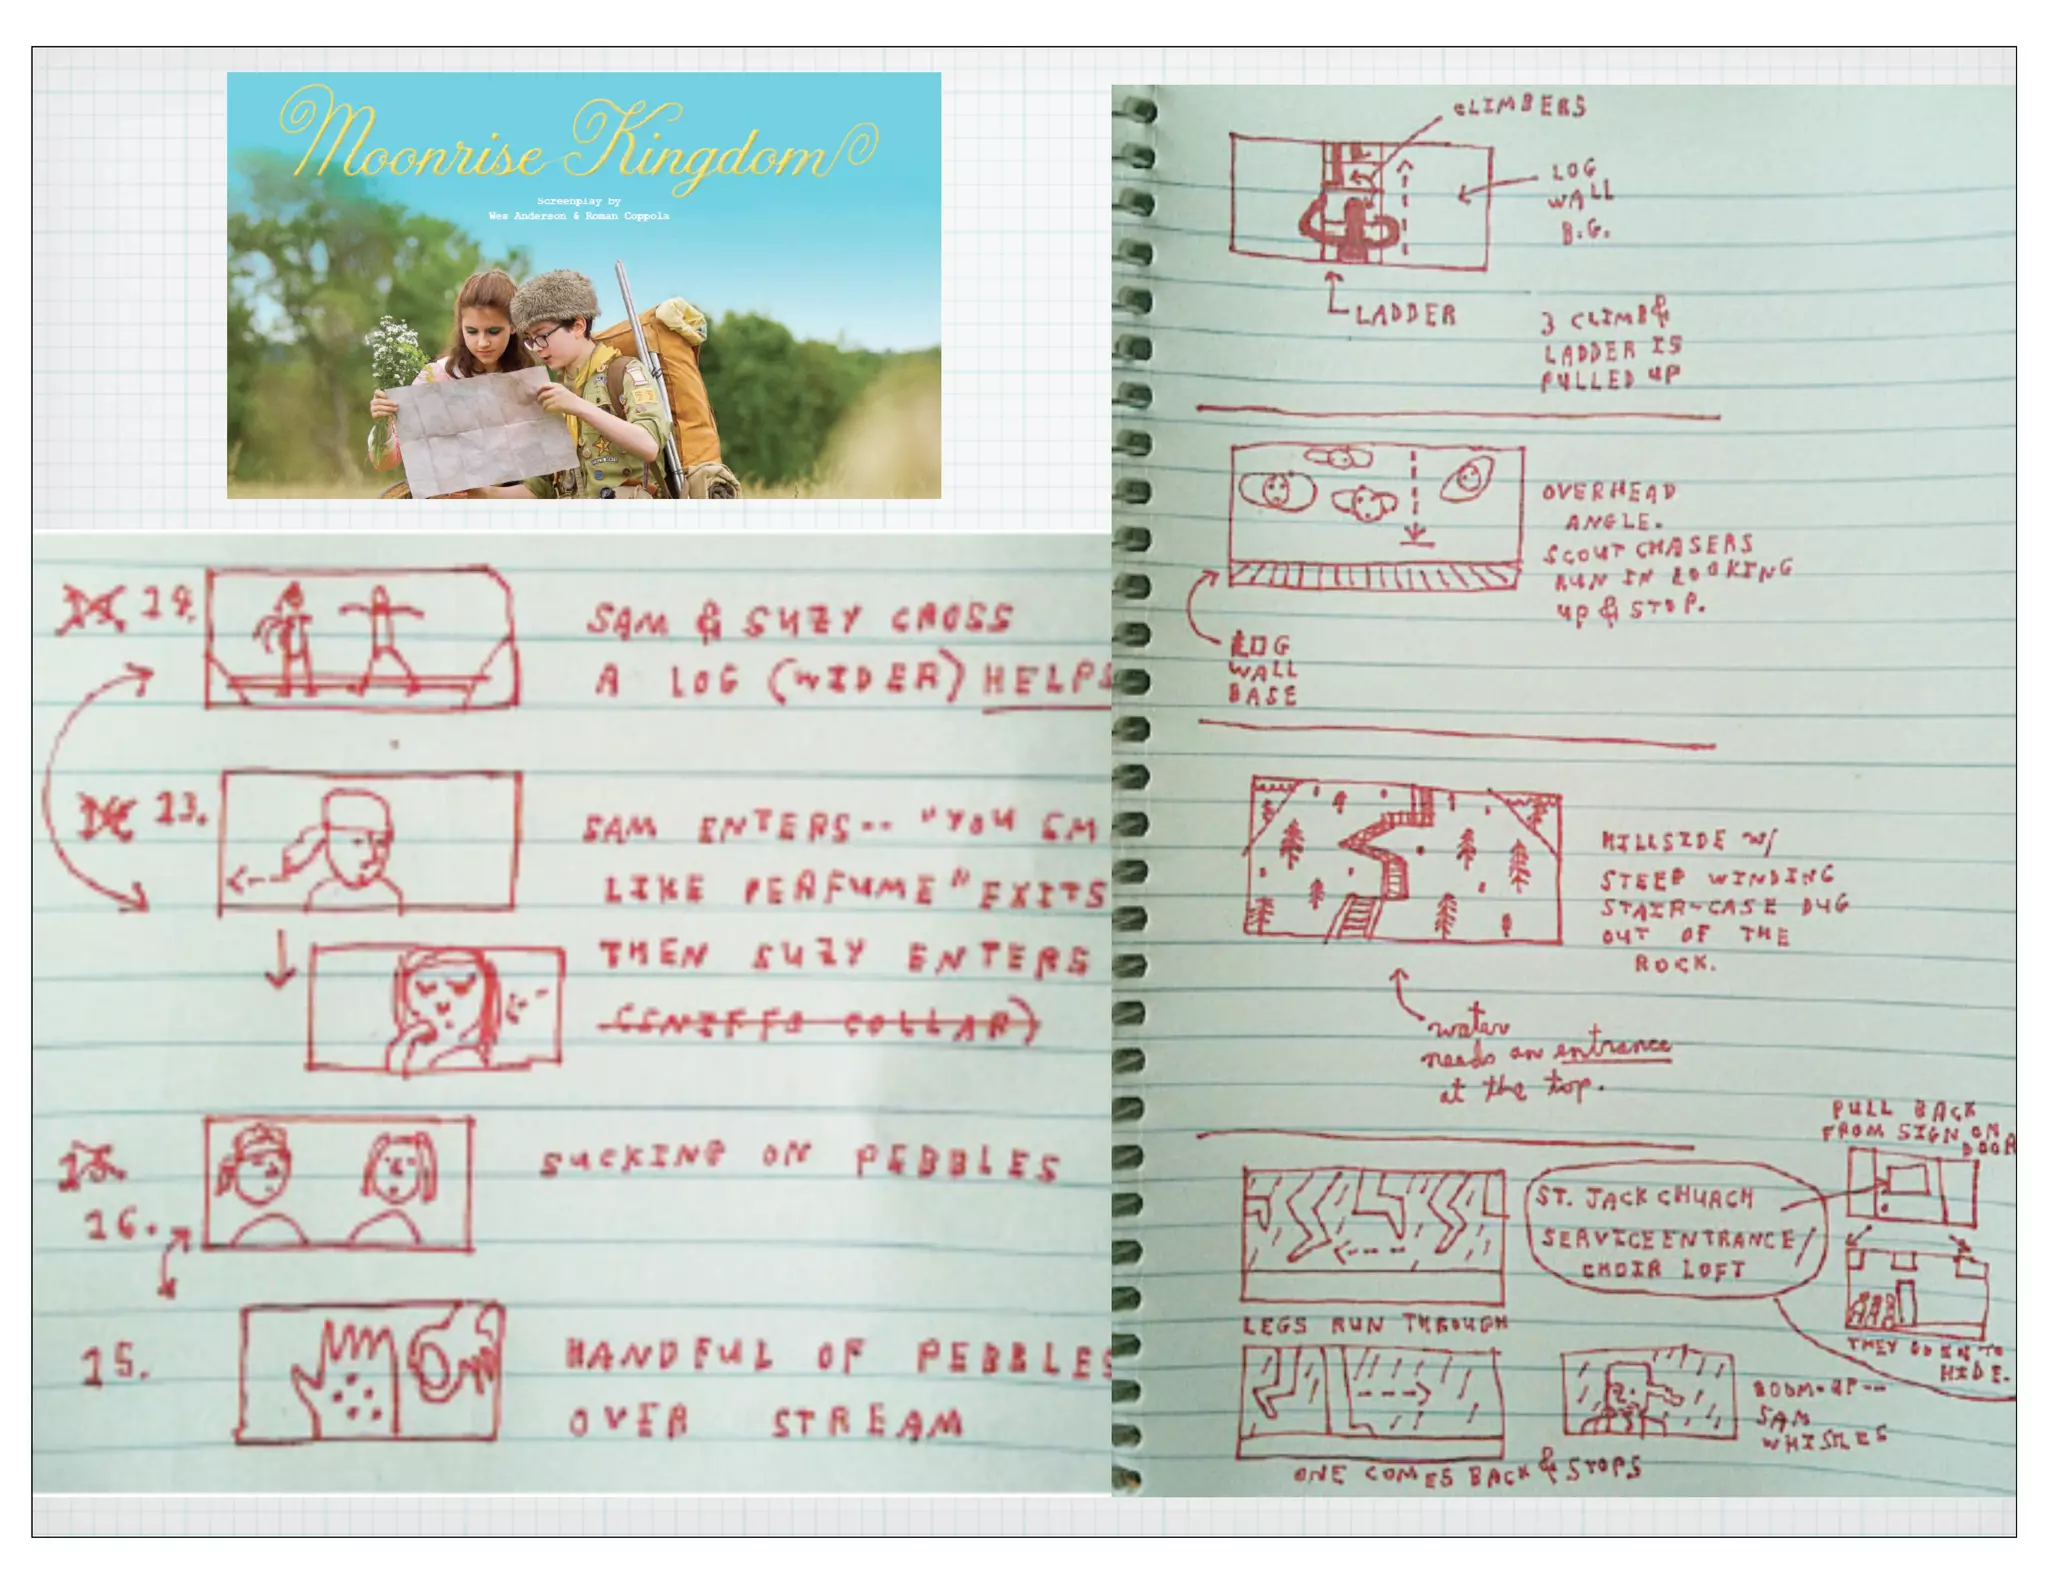 Moonrise Kingdom
Screenplay by
Wes Anderson & Roman Coppola
SAM & SUZY CROSS
A LOG (WIDER) HELPS
13.
SAM ENTERS-- "YOU SM
LIKE PERFUME" EXITS
THEN SUZY ENTERS
(SNIFFS COLLAR)
16.
SUCKING ON PEBBLES
15.
HANDFUL OF PEBBLES
OVER STREAM
CLIMBERS
LOG
WALL
B.G.
LADDER
3 CLIMB &
LADDER IS
PULLED UP
OVERHEAD
ANGLE.
SCOUT CHASERS
RUN IN LOOKING
UP & STOP.
LOG
WALL
BASE
HILLSIDE W/
STEEP WINDING
STAIR-CASE DUG
OUT OF THE
ROCK.
water
needs an entrance
at the top.
PULL BACK
FROM SIGN ON
DOOR
ST. JACK CHURCH
SERVICE ENTRANCE/
CHOIR LOFT
LEGS RUN THROUGH
HIDE.
BOOM-UP--
SAM
WHISTLES
ONE COMES BACK & STOPS